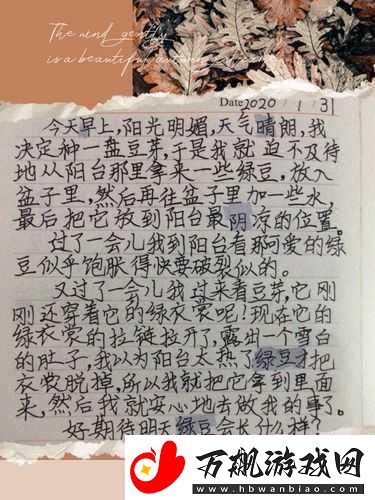 The wind gently
is a beautiful autumn
Date 2020 / 1 / 31
今天早上,阳光明媚,天气晴朗,我
决定种一盘豆芽,于是我就迫不及待
地从阳台那里拿来一些绿豆,放入
盆子里,然后再往盆子里加一些水,
最后把它放到阳台最阴凉的位置。
过了一会儿我到阳台看那可爱的绿
豆似乎饱胀得快要破裂似的。
又过了一会儿我过来看豆芽,它刚
刚还穿着它的绿衣裳呢?现在它的
绿衣裳的拉链拉开了,露出一个雪白
的肚子,我以为阳台太热了绿豆才把
衣裳脱掉,所以我就把它拿到里面
来,然后我就安心地去做我的事了。
好期待明天绿豆会长什么样?
万飙游戏网
www.hbwanbiao.com